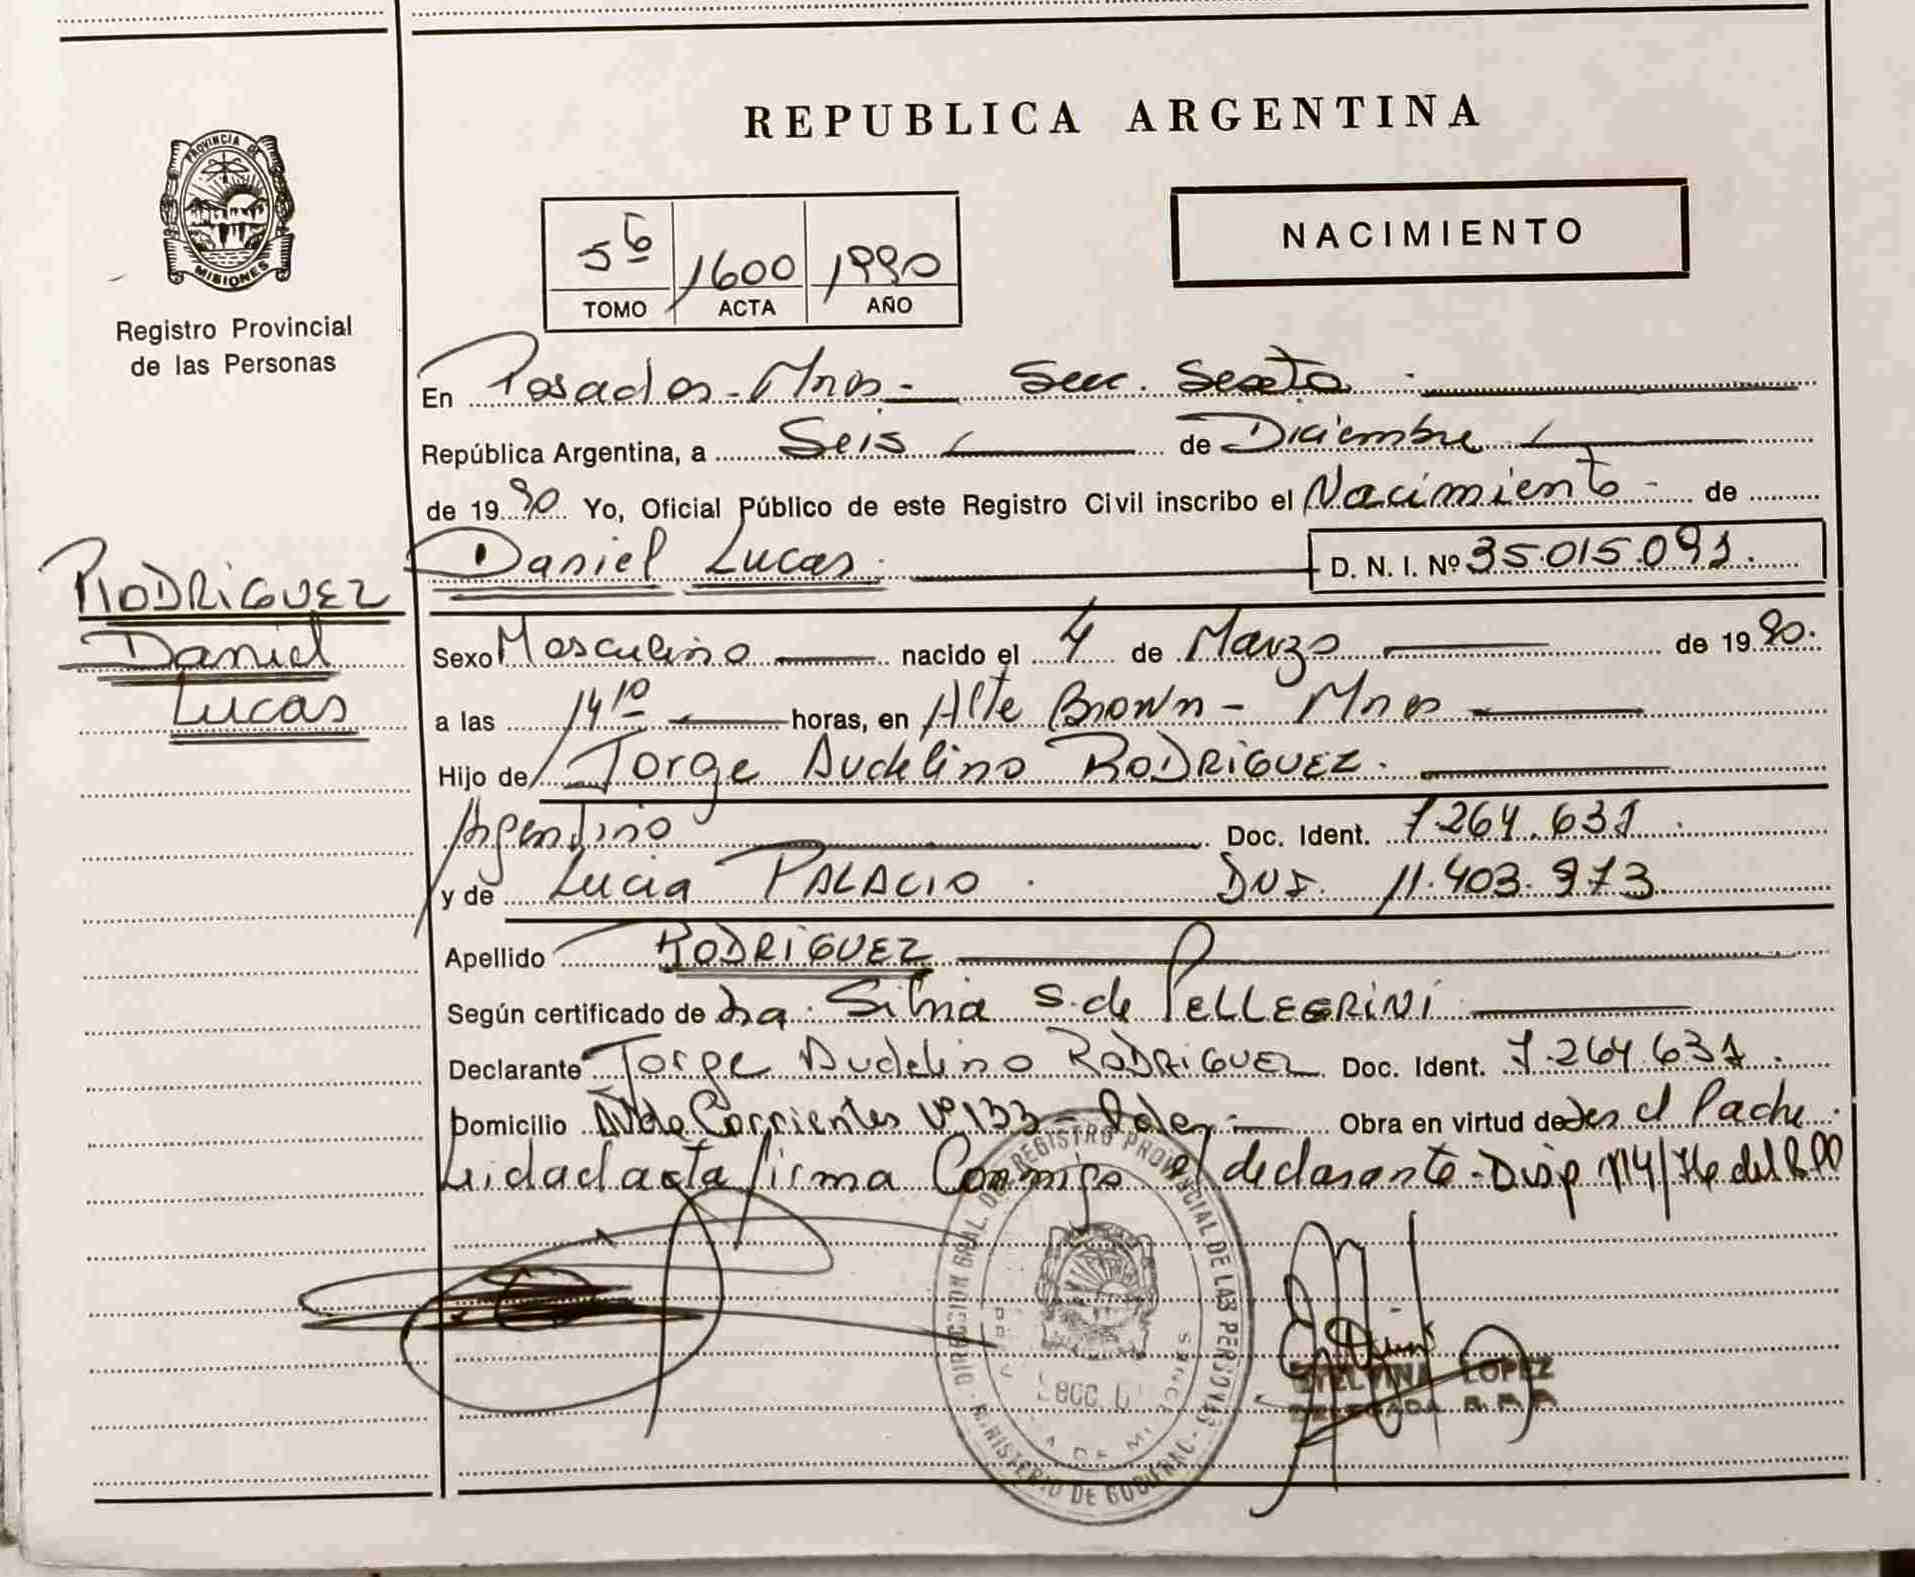 REPUBLICA ARGENTINA
PROVINCIA DE
MISIONES
Registro Provincial
de las Personas
NACIMIENTO
56 1600 1990
TOMO ACTA AÑO
En Posadas - Mnes - Secc. Sexta
República Argentina, a Seis de Diciembre
de 1990 Yo, Oficial Público de este Registro Civil inscribo el Nacimiento - de
Daniel Lucas. D. N. I. Nº 35.015.091.
RODRIGUEZ
Daniel
Lucas
Sexo Masculino nacido el 4 de Marzo de 1990.
a las 14 10 horas, en Alte Brown - Mnes
Hijo de Jorge Audelino RODRIGUEZ.
Argentino Doc. Ident. 7.264.631
y de Lucia PALACIO. DNI. 11.403.973
Apellido RODRIGUEZ
Según certificado de Dra. Silvia S. de PELLEGRINI
Declarante Jorge Audelino RODRIGUEZ Doc. Ident. 7.264.631.
Domicilio Avda Corrientes Nº 133 - Obra en virtud de ser el Padre.
Leida el acta firma Conmigo el declarante - Disp 114/76 del RPP
DIRECCION GRAL. DEL REGISTRO PROVINCIAL DE LAS PERSONAS - MINISTERIO DE GOBIERNO
ETELVINA LOPEZ
DELEGADA R.P.P.